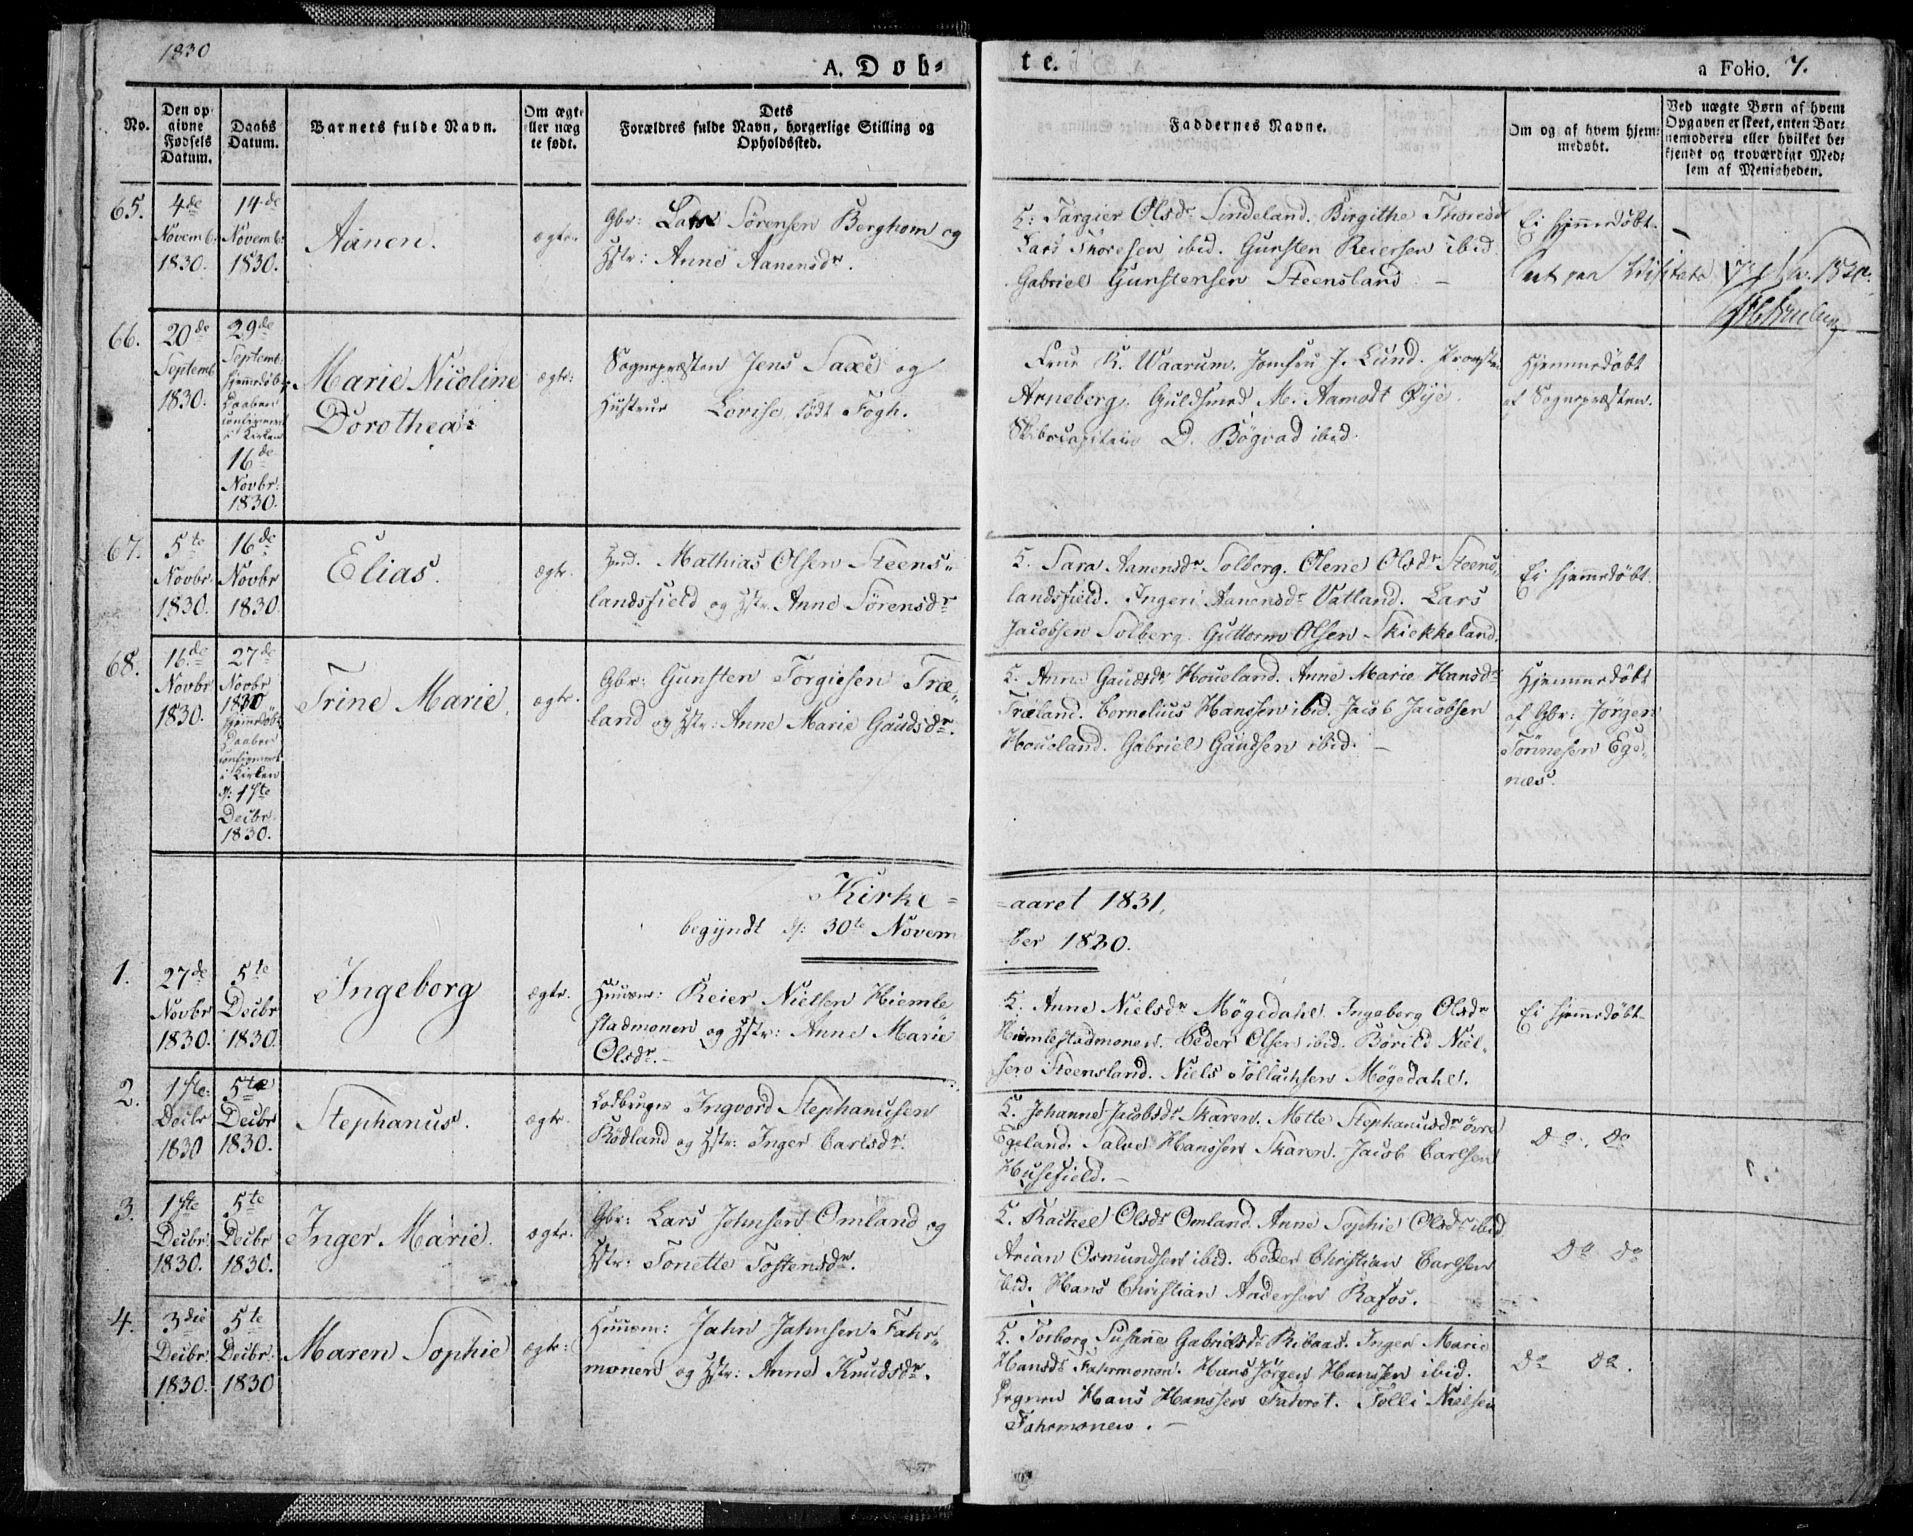 1830
A. Døb-
te.
a Folio. 7.
No.
Den op-
givne
Fødsels
Datum.
Daabs
Datum.
Barnets fulde Navn.
Om ægte
eller uæg
te født.
Dets
Forældres fulde Navn, borgerlige Stilling og
Opholdssted.
Faddernes Navne.
Om og af hvem hjem-
medøbt.
Ved uægte Børn af hvem
Opgaven er skeet, enten Bar-
nemoderen eller hvilket be-
kjendt og troværdigt Med-
lem af Menigheden.
65.
4de
Novemb:
1830.
14de
Novemb:
1830.
Aanen.
ægte.
Gbr: Lars Sørensen Berghom og
Hstr: Anne Aanensdr.
K: Targier Olsdr Sindeland. Birgithe Thoresdr
Lars Thoresen ibid. Gunsten Reiersen ibid
Gabriel Gunstensen Steensland. –
Ei hjemedøbt.
66.
20de
Septemb
1830.
29de
Septemb:
hjemedøbt
Daaben
confirmert
i Kirken
16de
Novbr:
1830.
Marie Nicoline
Dorothea.
ægte:
Sognepræsten Jens Saxe og
Hustrue Lovise født Fogh.
Frue K. Waarum. Jomfru J. Lund. Provst
Arneberg. Guldsmed M. Aamodt Øÿe.
Skibscapitain D. Bøgvad ibid.
Hjemmedøbt
af Sognepræsten.
67.
5te
Novbr
1830.
16de
Novbr
1830
Elias.
ægte.
Mathias Olsen Steens-
landsfield og Hstr: Anne Sørensdr
K. Sara Aanensdr Solberg. Olene Olsdr Steens-
landsfield. Ingeri Aanensdr Vatland. Lars
Jacobsen Solberg. Guttorm Olsen Skiekkeland.
Ei hjemedøbt.
68.
16de
Novbr
1830.
27de
Novbr
1830
hjemedøbt
Daaben
confirmert
i Kirken
d: 1ste
Decbr.
1830.
Trine Marie.
ægte.
Gbr: Gunsten Torgiesen Træ-
land og Hstr: Anne Marie Gaudsdr.
K. Anne Gaudsdr Houeland. Anne Marie Hansdr
Træland. Cornelius Hanssen ibid. Jacob Jacobsen
Houeland. Gabriel Gaudsen ibid. –
Hjemmedøbt
af Gbr: Jørgen
Tönnesen Ege-
næs.
Kirke-
-aaret 1831.
begyndt d: 30te Novem
-ber 1830.
1.
27de
Novbr
1830.
5te
Decbr
1830.
Ingeborg
ægte.
Huusm: Reier Nielsen Hiemle
stadmonen og Hstr: Anne Marie
Olsdr. –
K. Anne Nielsdr Møgedahl. Ingeborg Olsdr
Hiemlestadmonen. Peder Olsen ibid. Børild Niel-
sen Steensland. Niels Tollachsen Møgedahl.
Ei hjemedøbt
2.
1ste
Decbr
1830
5te
Decbr
1830.
Stephanus.
ægte.
Lodbruger Ingvord Stephanusen
Rødland og Hstr: Inger Carlsdr.
K. Johanne Jacobsdr Skaren. Mette Stephanusdr øvre
Egeland. Salve Hanssen Skaren. Jacob Carlsen
Husefield. –
Do. Do
3.
1ste
Decbr.
1830.
5te
Decbr
1830.
Inger Marie.
ægte.
Gbr: Lars Johnsen Omland og
Hstr: Tonette Tostensdr.
K. Rachel Olsdr Omland. Anne Sophie Olsdr ibid
Arian Osmundsen ibid. Peder Christian Carlsen
ibid. Hans Christian Andersen Rafos.
Do Do
4.
3die
Decbr.
1830.
5te
Decbr.
1830
Maren Sophie
ægte:
Huusm: Jahn Jahnsen Fahr-
monen og Hstr: Anne Knudsdr.
K. Torborg Susanne Gabrielsdr Ribaas. Inger Marie
Hansdr Fahrmonen. Hans Jørgen Hanssen ibid.
Hans Hanssen. Tolli Nielsen
Fahrmonen. –
Do Do.